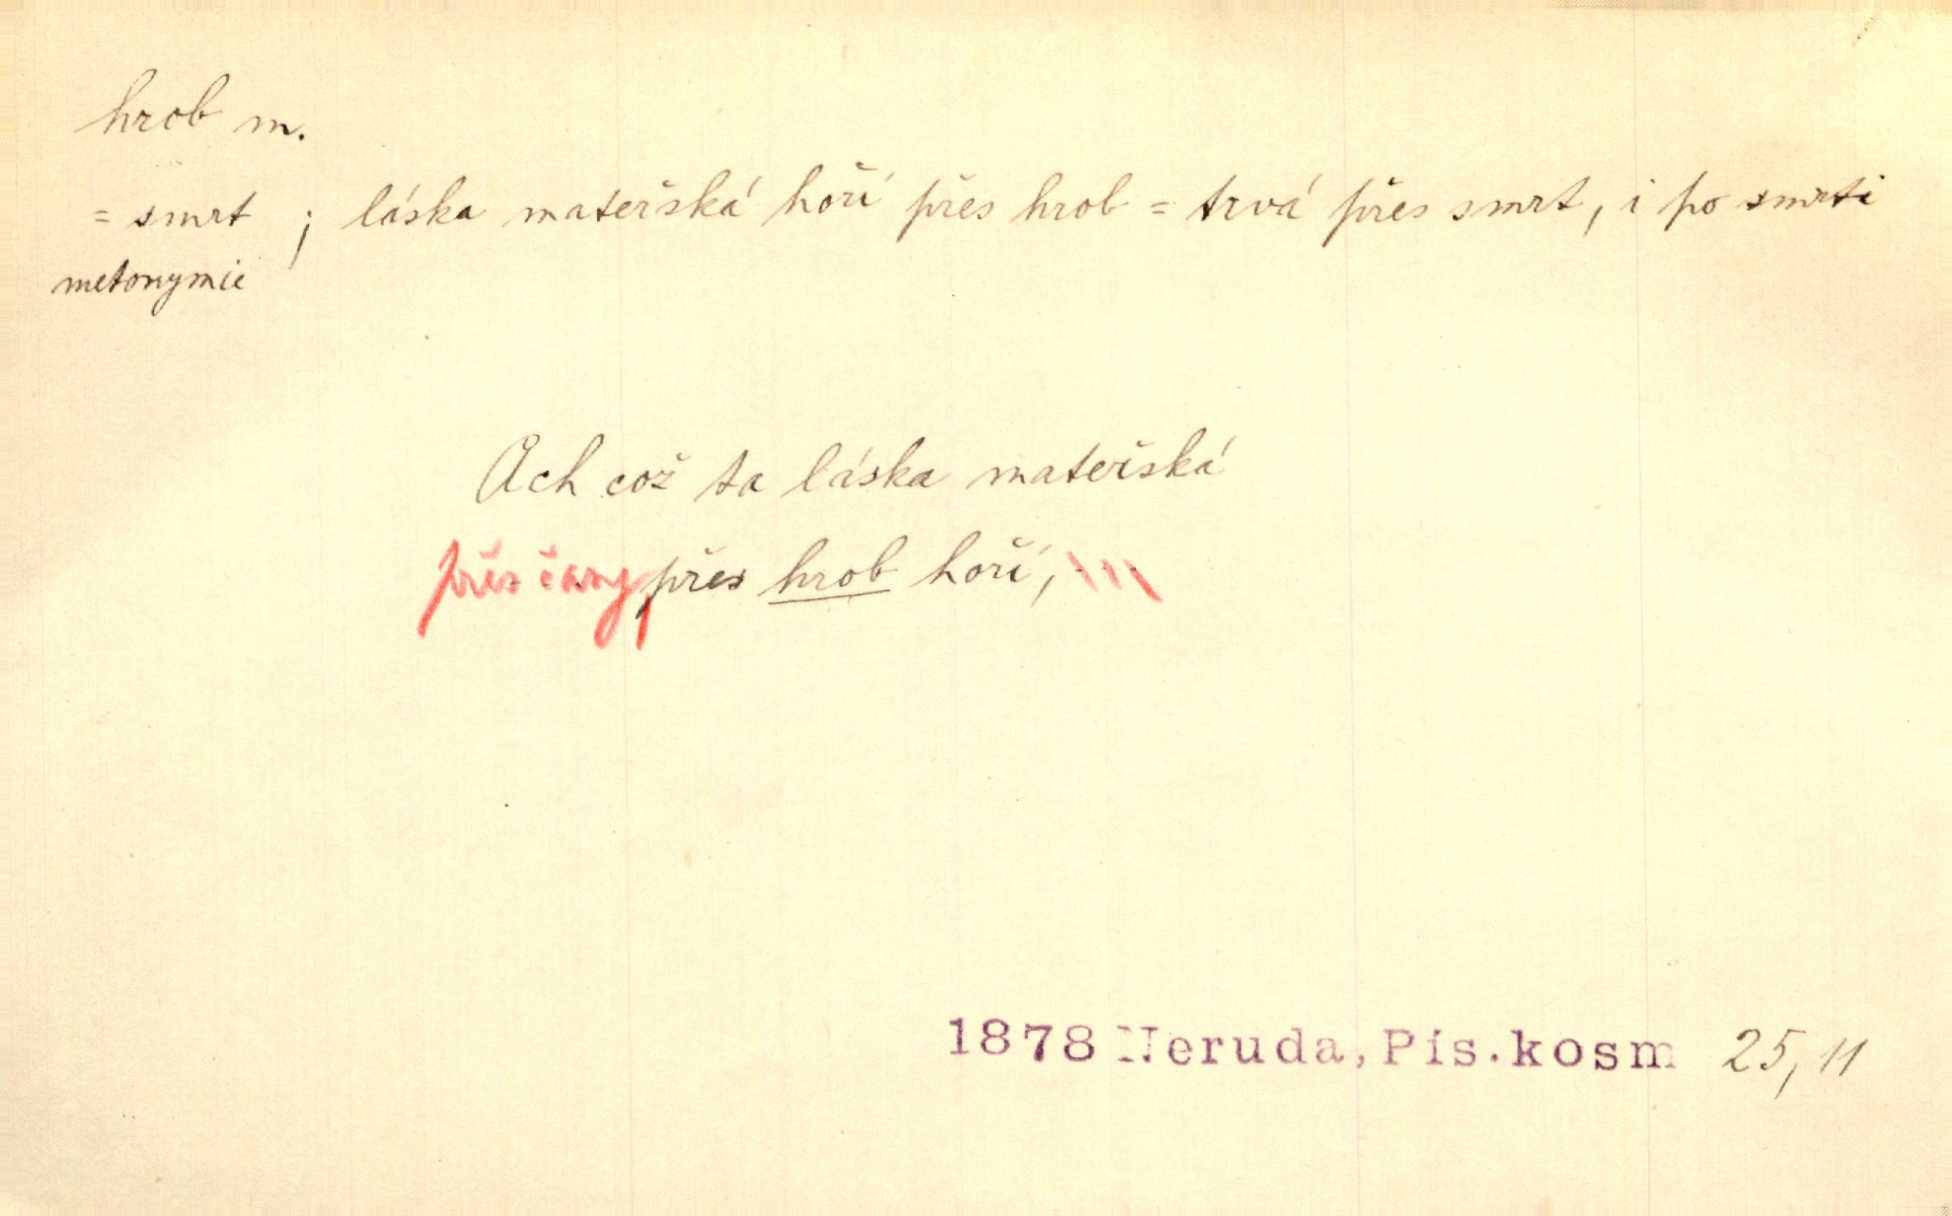 hrob m.
= smrt ; láska mateřská hoří přes hrob = trvá přes smrt, i po smrti
metonymie
Ach což ta láska mateřská
přes čary přes hrob hoří,
1878 Neruda, Pís.kosm 25, 11